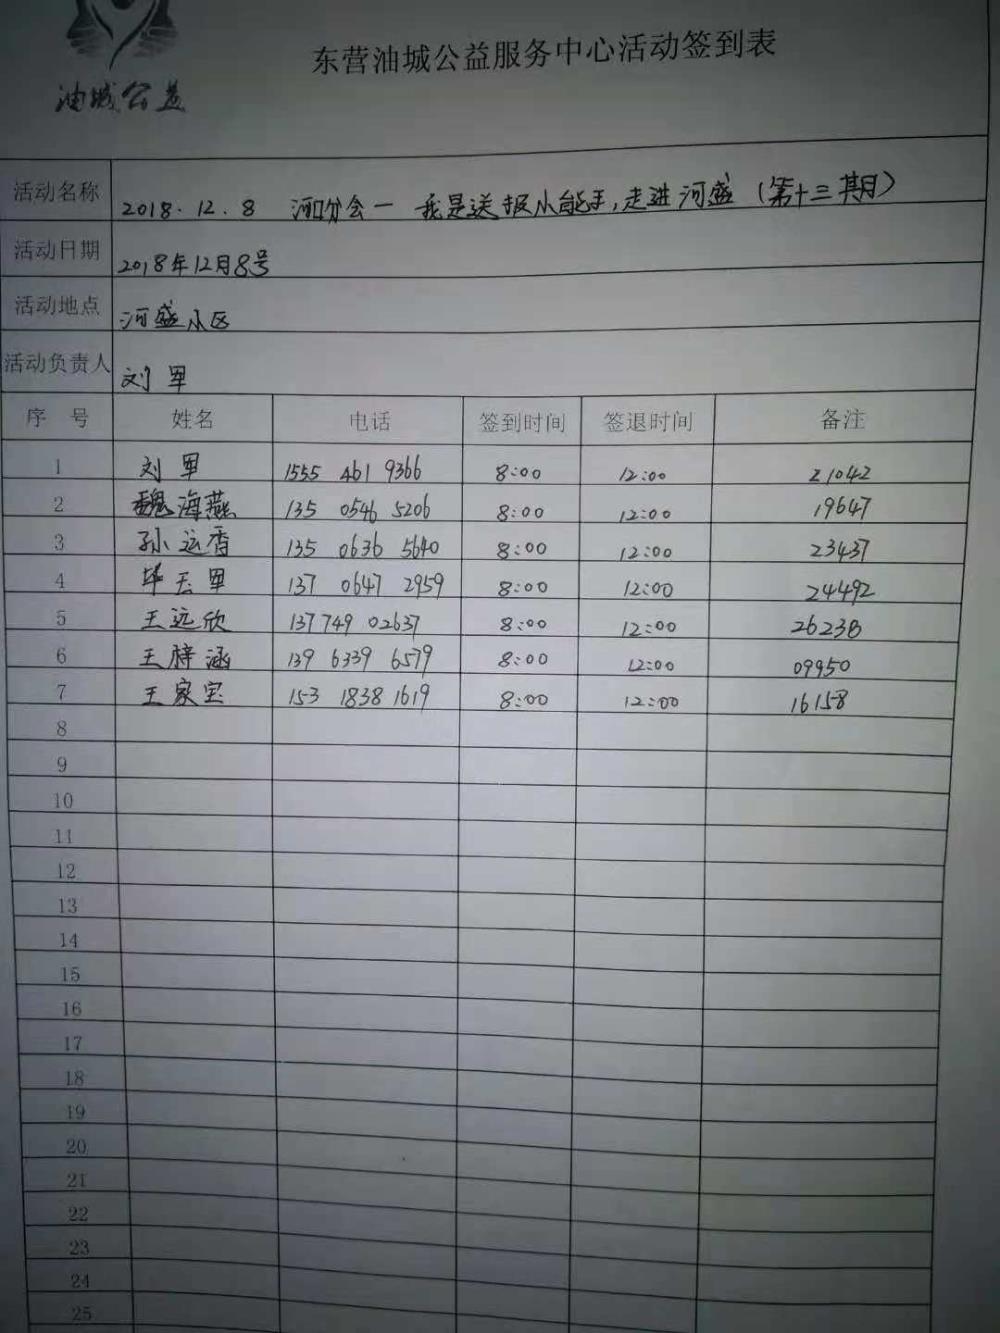 油城公益
东营油城公益服务中心活动签到表
活动名称 2018.12.8 河口分会一 我是送报小能手,走进河盛(第十三期)
活动日期 2018年12月8号
活动地点 河盛小区
活动负责人 刘军
序号 姓名 电话 签到时间 签退时间 备注
1 刘军 1555 461 9366 8:00 12:00 21042
2 魏海燕 135 0546 5206 8:00 12:00 19647
3 孙运香 135 0636 5640 8:00 12:00 23437
4 毕玉军 137 0647 2959 8:00 12:00 24492
5 王远欣 137749 02637 8:00 12:00 26238
6 王梓涵 139 6339 6579 8:00 12:00 09950
7 王家宝 153 1838 1619 8:00 12:00 16158
8
9
10
11
12
13
14
15
16
17
18
19
20
21
22
23
24
25